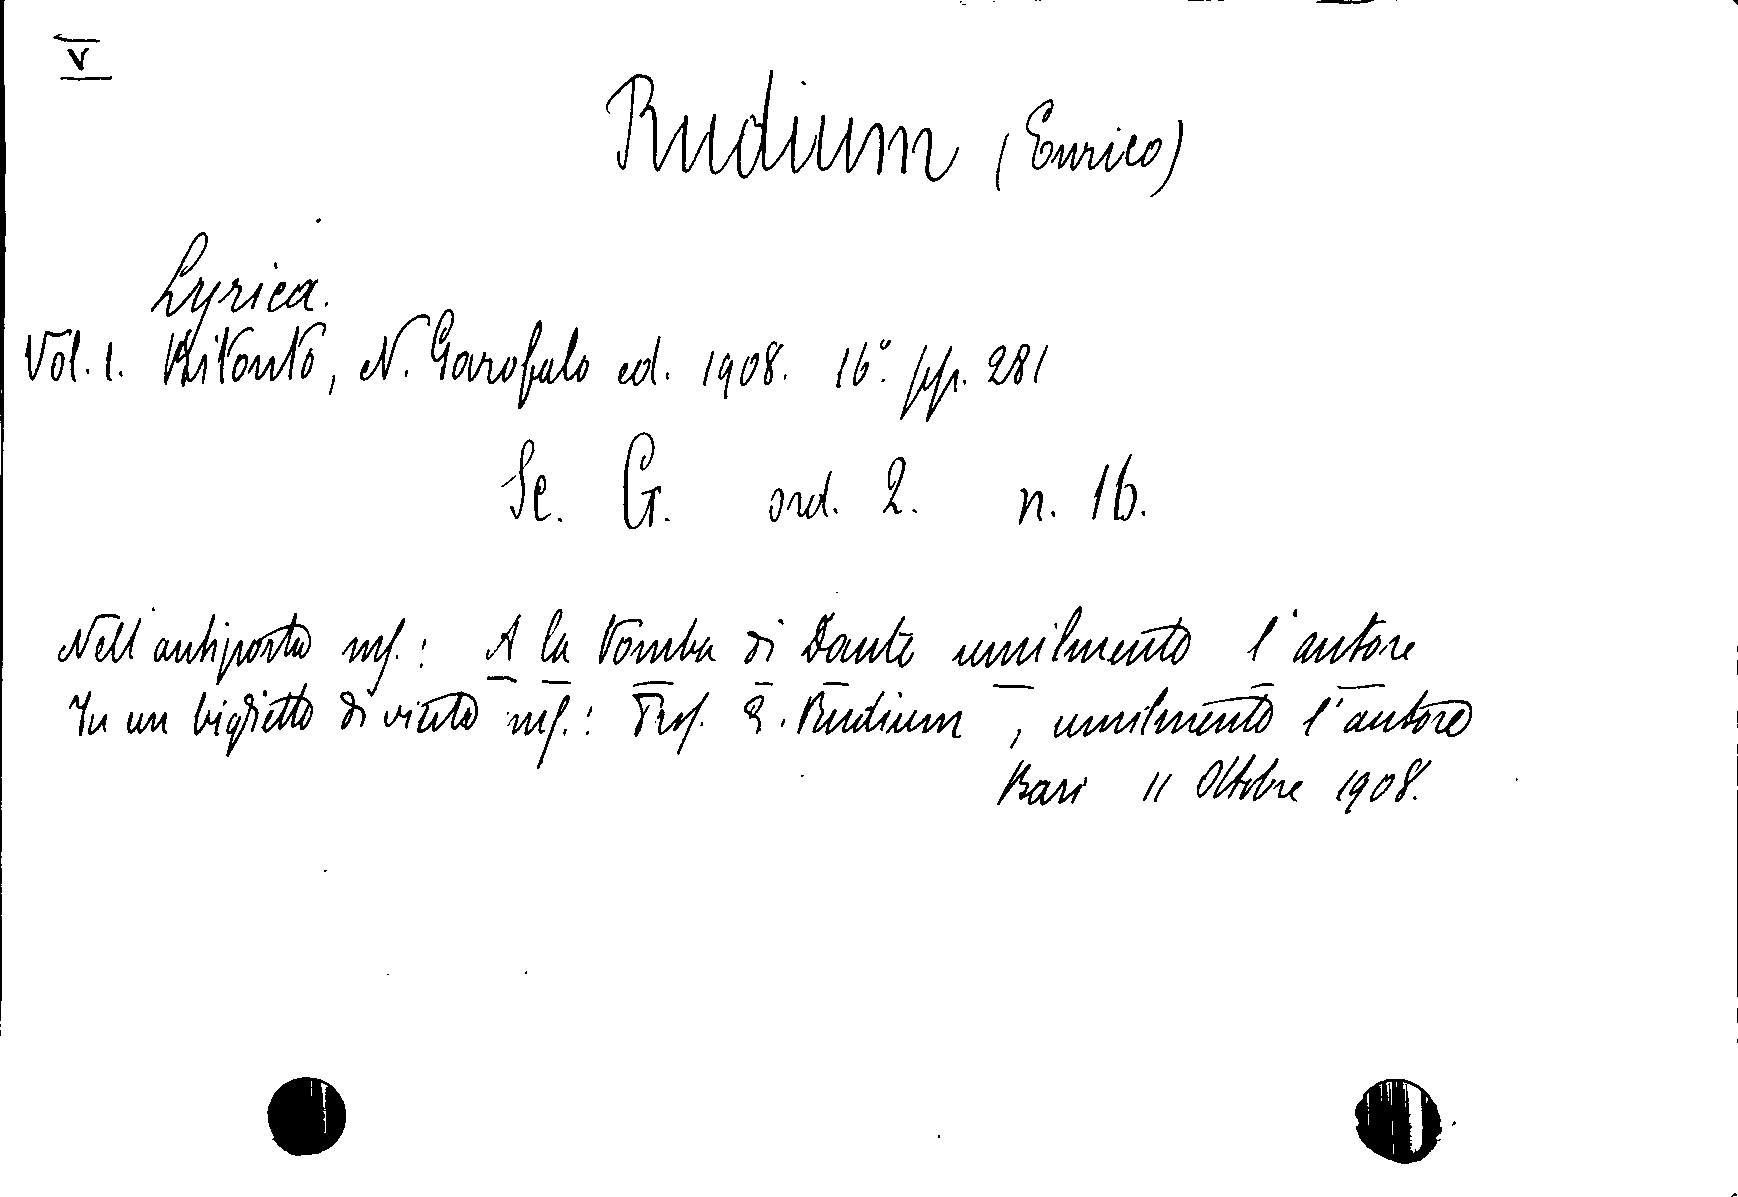 V
Rudium (Enrico)
Lyrica.
Vol. 1. Bitonto, N. Garofalo ed. 1908. 16.° pp. 281
Sc. G. ord. 2. n. 16.
Nell'antiporta ms.: A la Tomba di Dante umilmente l'autore
In un biglietto di visita ms.: Prof. E. Rudium, umilmente l'autore
Bari 11 Ottobre 1908.